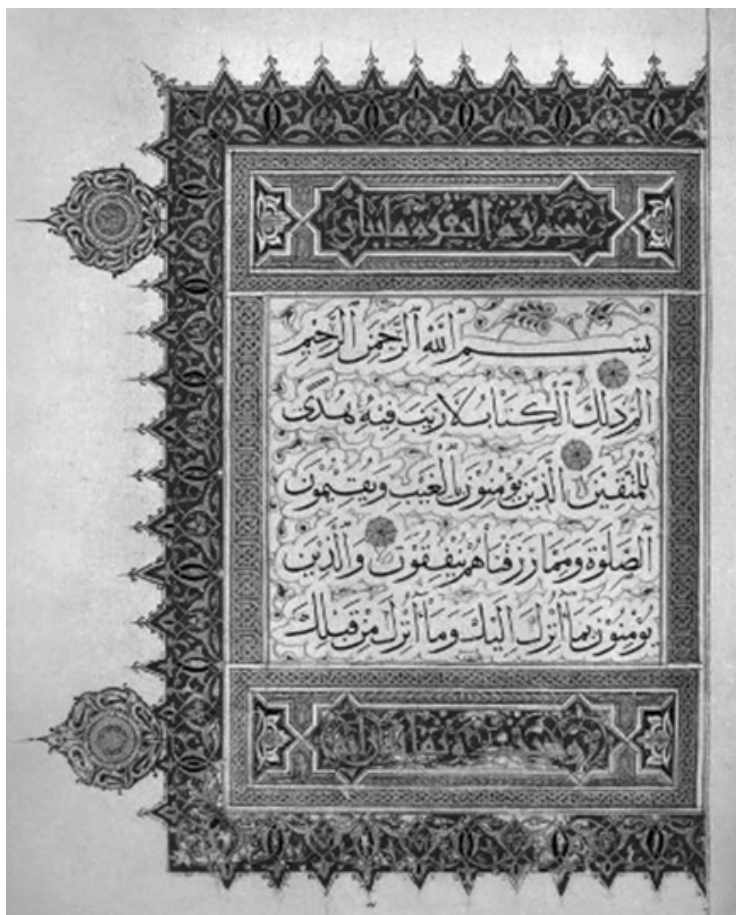 سورة البقرة مائتان
بِسْمِ ٱللَّهِ ٱلرَّحْمَنِ ٱلرَّحِيمِ
الم ذَلِكَ ٱلْكِتَابُ لَا رَيْبَ فِيهِ هُدًى
لِلْمُتَّقِينَ ٱلَّذِينَ يُؤْمِنُونَ بِٱلْغَيْبِ وَيُقِيمُونَ
ٱلصَّلَوةَ وَمِمَّا رَزَقْنَاهُمْ يُنْفِقُونَ وَٱلَّذِينَ
يُؤْمِنُونَ بِمَا أُنْزِلَ إِلَيْكَ وَمَا أُنْزِلَ مِنْ قَبْلِكَ